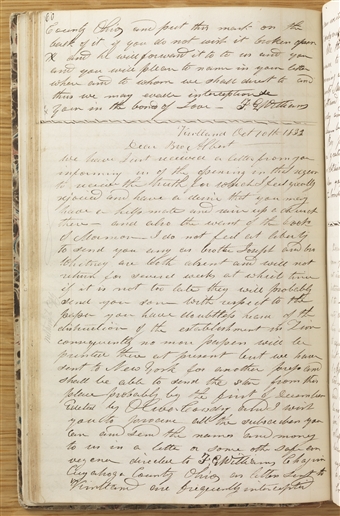 60
County Ohio and put this mark on the
back of it if you do not wish it broken open
X and he will forward it to us and you
and you will please to name in your letter
where and to whom we shall direct to and
thus we may evade interception &c
Yours in the bonds of Love F. G. Williams
Kirtland Oct 10th 1833
Dear Bro
We have just received a letter from you
informing us of the opening in that region
to receive the truth for which I feel greatly
rejoiced and have a desire that you may
have a help mate and raise up a church
there and also the want of the book
of Mormon I do not feel at liberty
to send you any as brother Joseph and
are both absent and will not
return for several weeks at which time
if it is not too late they will probably
send you some with respect to the
paper you have doubtless heard of the
distruction of the establishment in Zion
consequently no more papers will be
printed there at present but we have
sent to New York for another press and
shall be able to send the star from this
place probably by the first of December
edited by Oliver Cowdery and I wish
you to procure all the subscribers you
can and send the names and money
to us in a letter or some other safe con
veyance directed to F. G. Williams Chagrin
Cuyahoga County Ohio as letters sent to
Kirtland are frequently intercepted